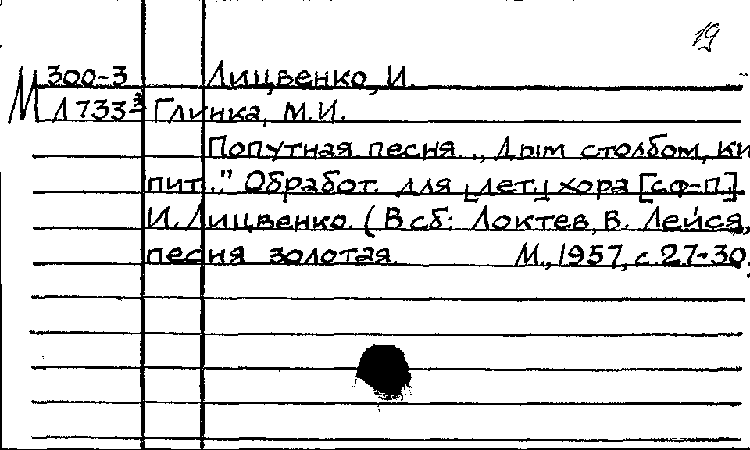 19
М 300-3 Лицвенко, И.
Л 733-3 Глинка, М.И.
Попутная песня. „Дым столбом, ки
пит.." Обработ. для [дет.] хора [с ф-п].
И. Лицвенко. (В сб: Локтев, В. Лейся,
песня золотая. М., 1957, с. 27-30.